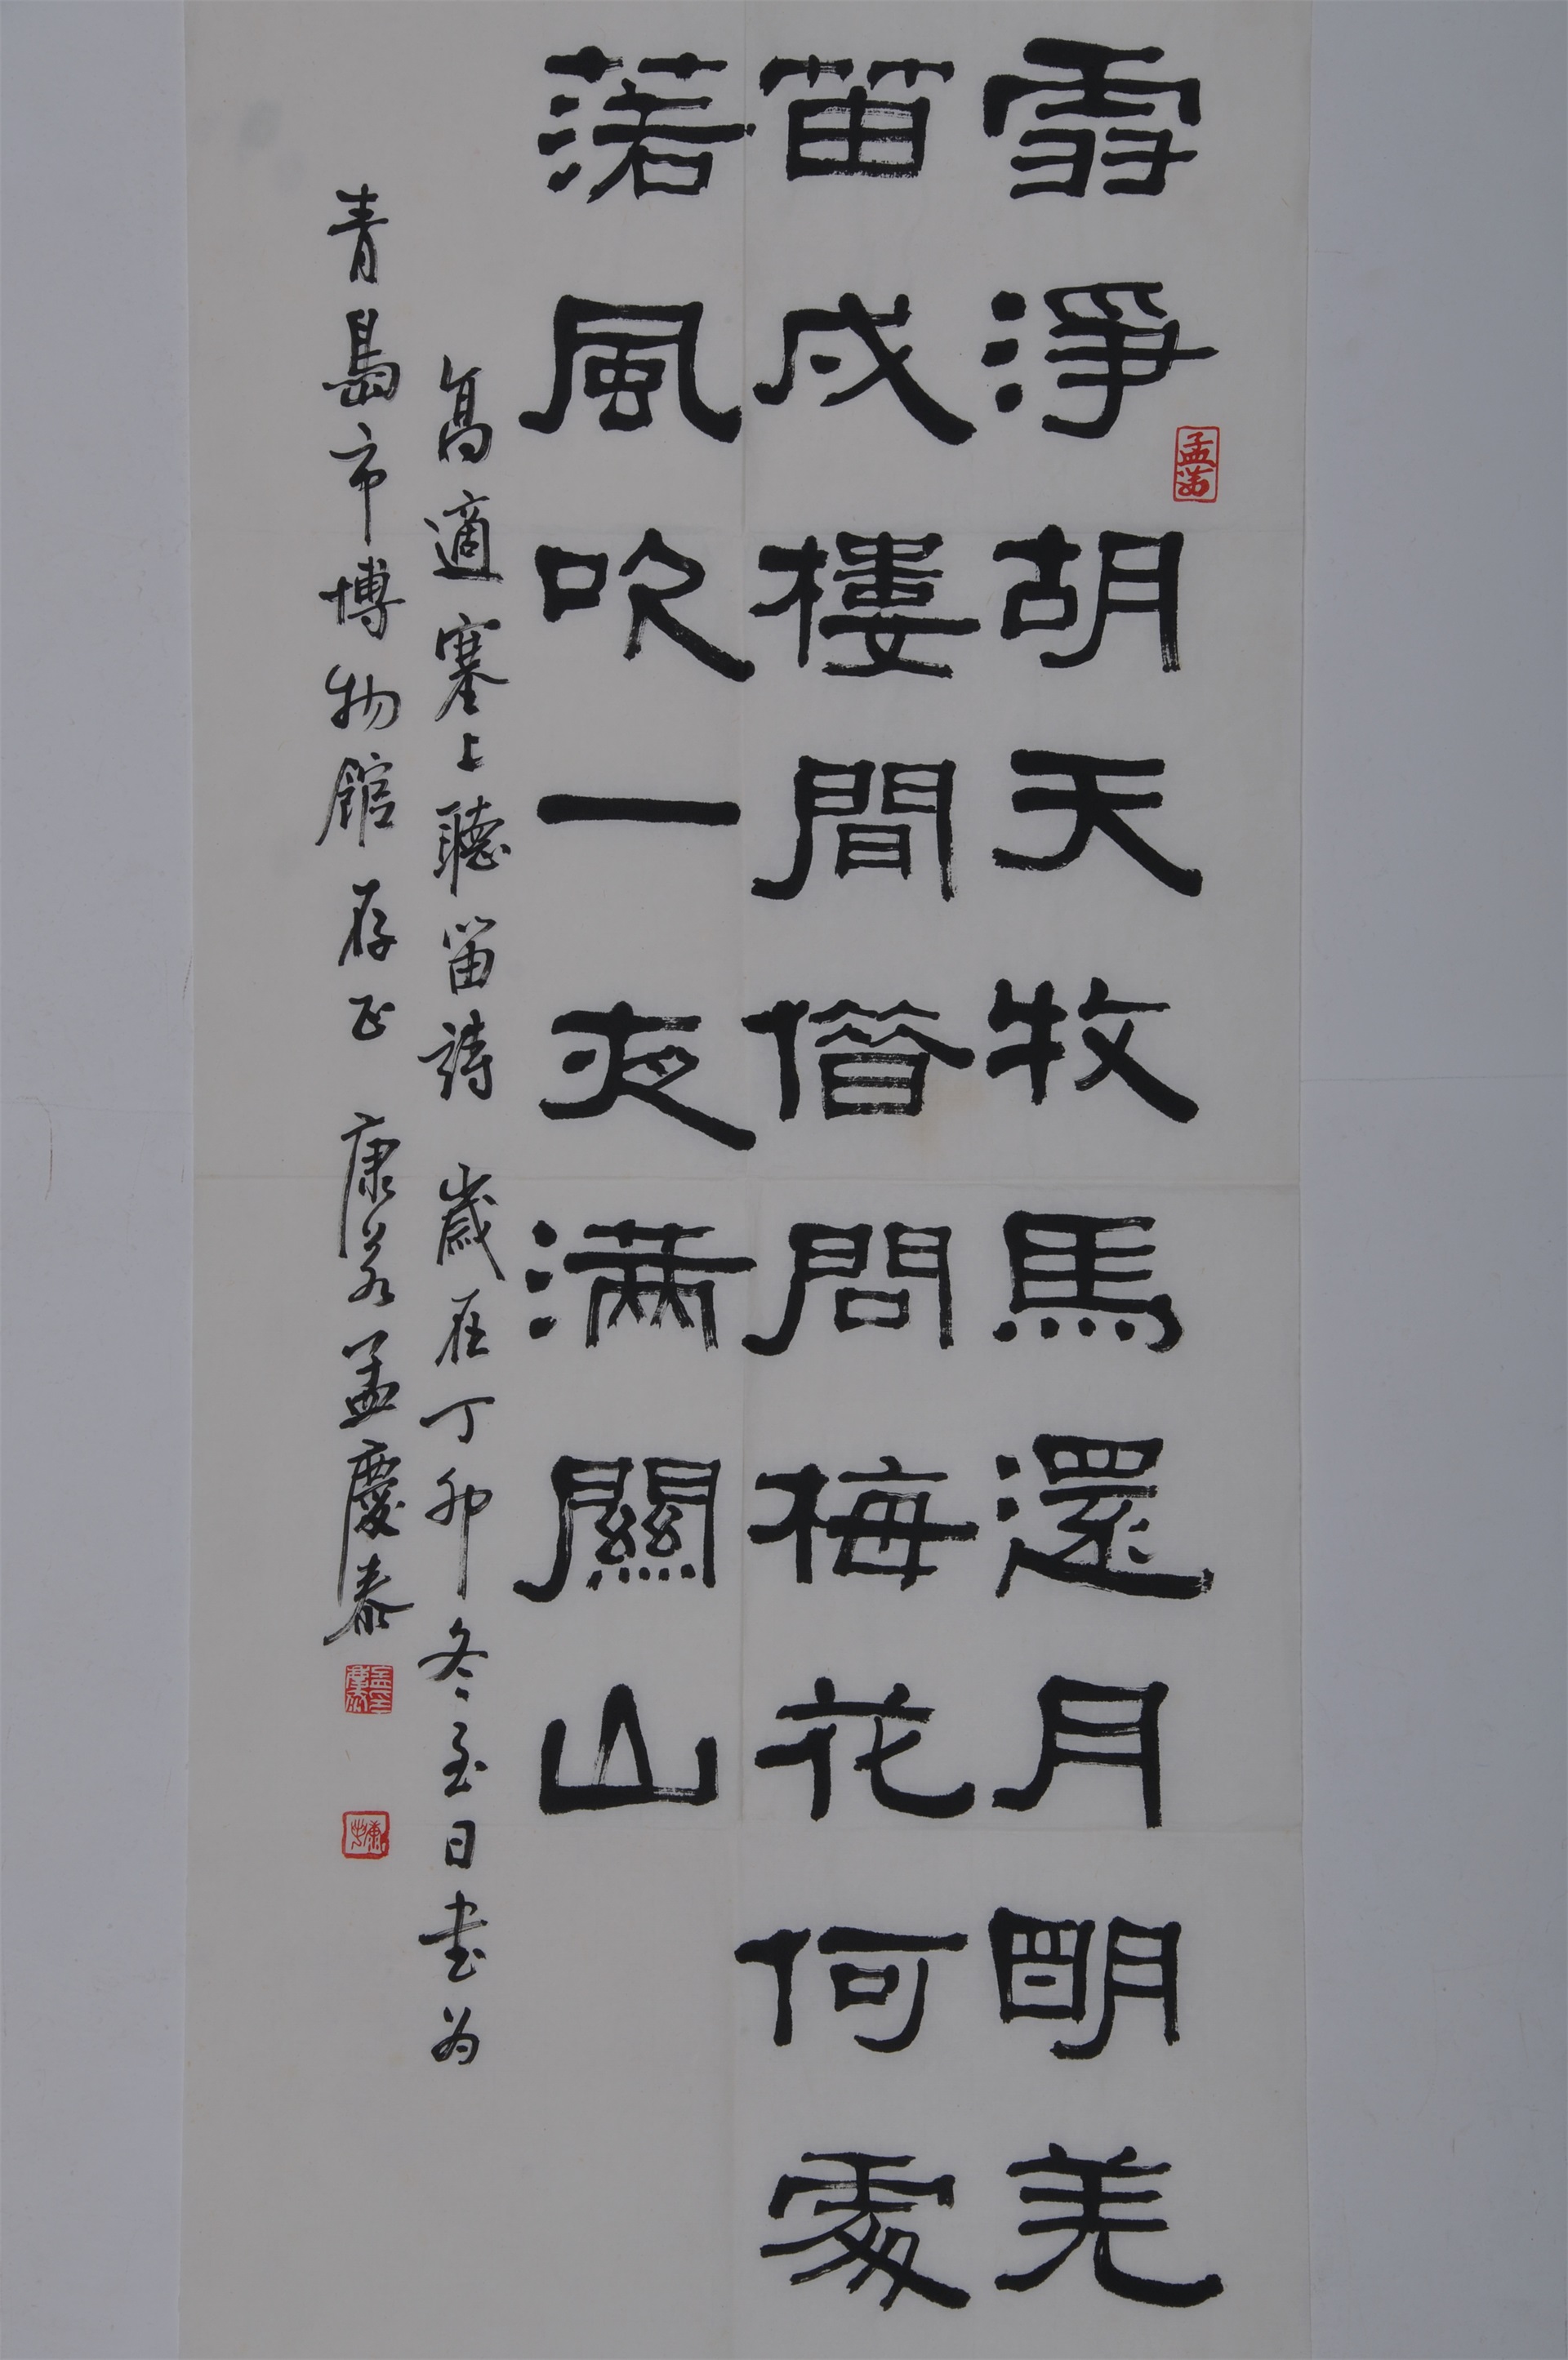 雪淨胡天牧馬還月明羌
笛戍樓間借問梅花何處
落風吹一夜滿關山
高適塞上聽笛詩 歲在丁卯冬至日書为
青島市博物館存正 康若孟慶泰